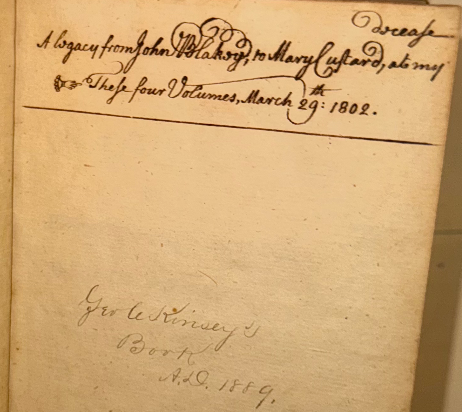 Decease
A legacy from John Blakey, to Mary Custard, at my
☞ These four Volumes, March 29:th 1802.
Geo C Kinsey's
Book
A.D. 1889.